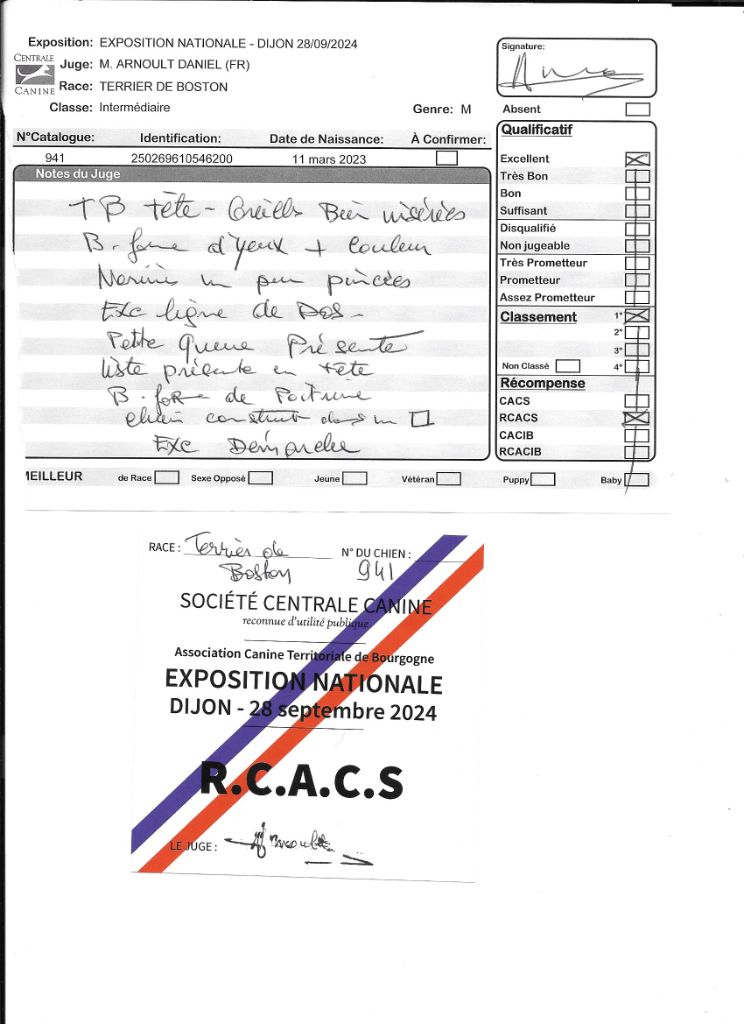 Exposition: EXPOSITION NATIONALE - DIJON 28/09/2024
CENTRALE CANINE
Juge: M. ARNOULT DANIEL (FR)
Race: TERRIER DE BOSTON
Classe: Intermédiaire
Genre: M
N°Catalogue: Identification: Date de Naissance: À Confirmer:
941 250269610546200 11 mars 2023
Notes du Juge
TB tête - Oreilles Bien insérées
B. forme d'yeux + Couleur
Narines un peu pincées
Exc ligne de Dos -
Petite Queue Présente
liste présente en tête
B. forme de Poitrine
chien construit dans un □
Exc Démarche
Signature:
Absent
Qualificatif
Excellent
Très Bon
Bon
Suffisant
Disqualifié
Non jugeable
Très Prometteur
Prometteur
Assez Prometteur
Classement 1°
2°
3°
Non Classé 4°
Récompense
CACS
RCACS
CACIB
RCACIB
MEILLEUR de Race Sexe Opposé Jeune Vétéran Puppy Baby
RACE : Terrier de Boston N° DU CHIEN : 941
SOCIÉTÉ CENTRALE CANINE
reconnue d'utilité publique
Association Canine Territoriale de Bourgogne
EXPOSITION NATIONALE
DIJON - 28 septembre 2024
R.C.A.C.S
LE JUGE : Arnoult